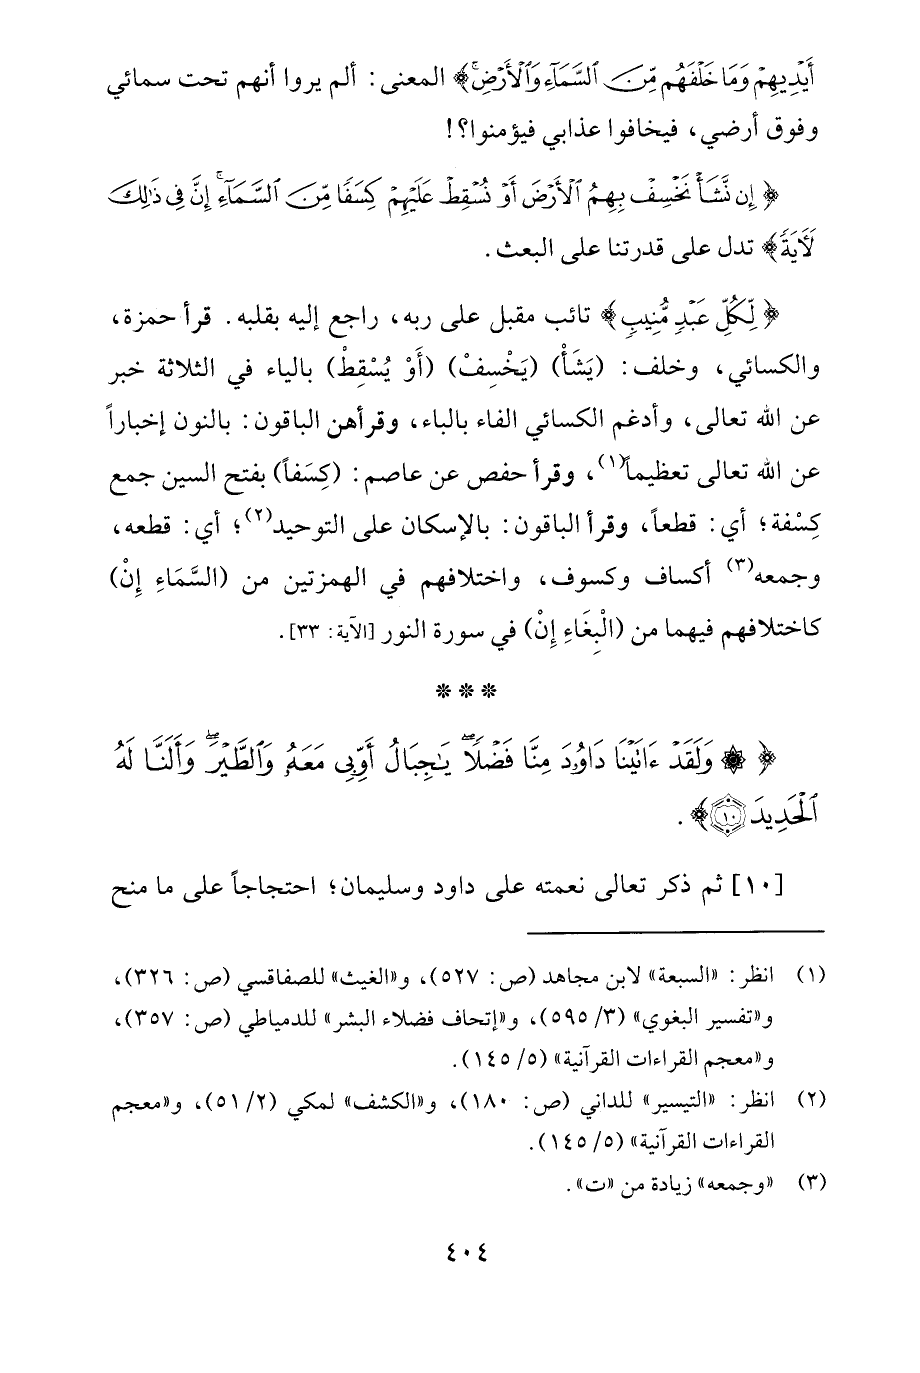 أَيْدِيهِمْ وَمَا خَلْفَهُم مِّنَ السَّمَآءِ وَالْأَرْضِ ۚ﴾ المعنى: ألم يروا أنهم تحت سمائي
وفوق أرضي، فيخافوا عذابي فيؤمنوا؟!
﴿إِن نَّشَأْ نَخْسِفْ بِهِمُ الْأَرْضَ أَوْ نُسْقِطْ عَلَيْهِمْ كِسَفًا مِّنَ السَّمَآءِ ۚ إِنَّ فِى ذَٰلِكَ
لَآيَةً﴾ تدل على قدرتنا على البعث.
﴿لِّكُلِّ عَبْدٍ مُّنِيبٍ﴾ تائب مقبل على ربه، راجع إليه بقلبه. قرأ حمزة،
والكسائي، وخلف: (يَشَأْ) (يَخْسِفْ) (أَوْ يُسْقِطْ) بالياء في الثلاثة خبر
عن الله تعالى، وأدغم الكسائي الفاء بالباء، وقرأهن الباقون: بالنون إخباراً
عن الله تعالى تعظيماً(١)، وقرأ حفص عن عاصم: (كِسَفاً) بفتح السين جمع
كِسْفة؛ أي: قطعاً، وقرأ الباقون: بالإسكان على التوحيد(٢)؛ أي: قطعه،
وجمعه(٣) أكساف وكسوف، واختلافهم في الهمزتين من (السَّمَاءِ إِنْ)
كاختلافهم فيهما من (الْبِغَاءِ إِنْ) في سورة النور [الآية: ٣٣].
***
﴿۞ وَلَقَدْ ءَاتَيْنَا دَاوُۥدَ مِنَّا فَضْلًا ۖ يَٰجِبَالُ أَوِّبِى مَعَهُۥ وَالطَّيْرَ ۖ وَأَلَنَّا لَهُ
الْحَدِيدَ ۝١٠﴾.
[١٠] ثم ذكر تعالى نعمته على داود وسليمان؛ احتجاجاً على ما منح
(١) انظر: «السبعة» لابن مجاهد (ص: ٥٢٧)، و«الغيث» للصفاقسي (ص: ٣٢٦)،
و«تفسير البغوي» (٣/ ٥٩٥)، و«إتحاف فضلاء البشر» للدمياطي (ص: ٣٥٧)،
و«معجم القراءات القرآنية» (٥/ ١٤٥).
(٢) انظر: «التيسير» للداني (ص: ١٨٠)، و«الكشف» لمكي (٢/ ٥١)، و«معجم
القراءات القرآنية» (٥/ ١٤٥).
(٣) «وجمعه» زيادة من «ت».
٤٠٤